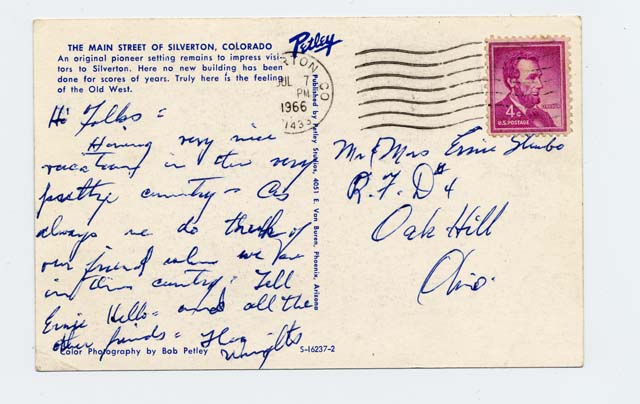 THE MAIN STREET OF SILVERTON, COLORADO
An original pioneer setting remains to impress visi-
tors to Silverton. Here no new building has been
done for scores of years. Truly here is the feeling
of the Old West.
Petley
RTON CO
JUL 7
PM
1966
4¢
U.S. POSTAGE
Hi Folks =
Having very nice
vacation in this very
pretty country - As
always we do think of
our friend when we are
in this country. Tell
Ernie Hello - and all the
other friends =
Wrights
Mr & Mrs Ernie
R.F.D #4
Oak Hill
Ohio.
Published by Petley Studios, 4051 E. Van Buren, Phoenix, Arizona
Color Photography by Bob Petley
S-16237-2